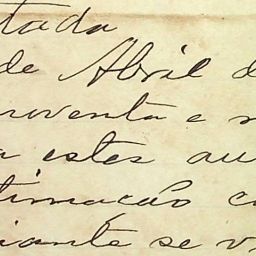 tada
de Abril d
noventa e n
a estes au
timação c
iante se v